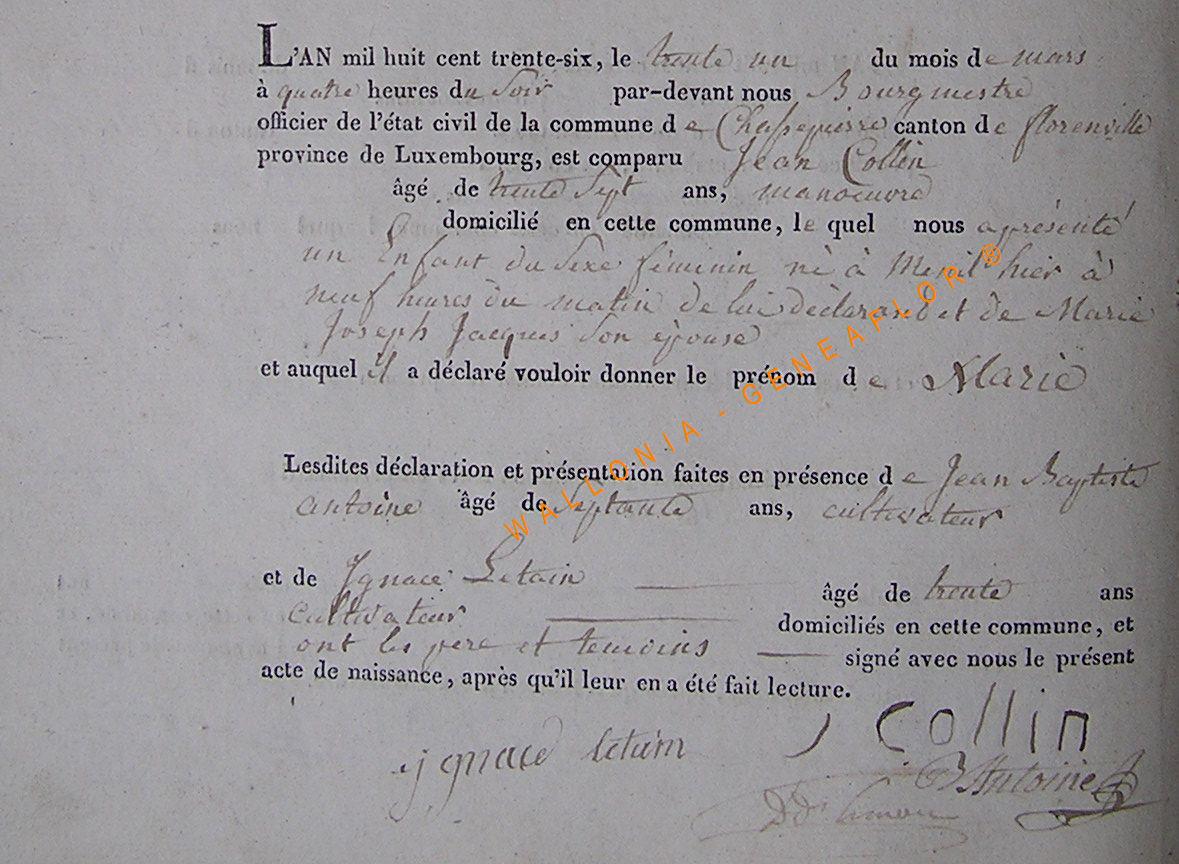 L'AN mil huit cent trente-six, le trente un du mois de mars
à quatre heures du soir par-devant nous Bourgmestre
officier de l'état civil de la commune de Chassepierre canton de florenville
province de Luxembourg, est comparu Jean Collin
âgé de trente Sept ans, manoeuvre
domicilié en cette commune, le quel nous a présenté
un Enfant du Sexe féminin né à Menil hier à
neuf heures du matin de lui déclarant et de Marie
Joseph Jacques son épouse
et auquel il a déclaré vouloir donner le prénom de Marie
Lesdites déclaration et présentation faites en présence de Jean Baptiste
antoine âgé de Septante ans, cultivateur
et de Ignace Letain âgé de trente ans
cultivateur domiciliés en cette commune, et
ont les pere et temoins signé avec nous le présent
acte de naissance, après qu'il leur en a été fait lecture.
J Collin
ignace letain
B Antoine
WALLONIA - GENEAFLOR ®